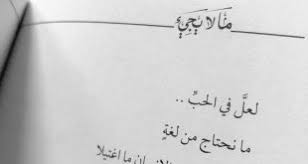 مَالَا يَجِيءُ
لعلَّ في الحبِّ ..
ما نحتاج من لغةٍ
الإنسان ما اغتيلا